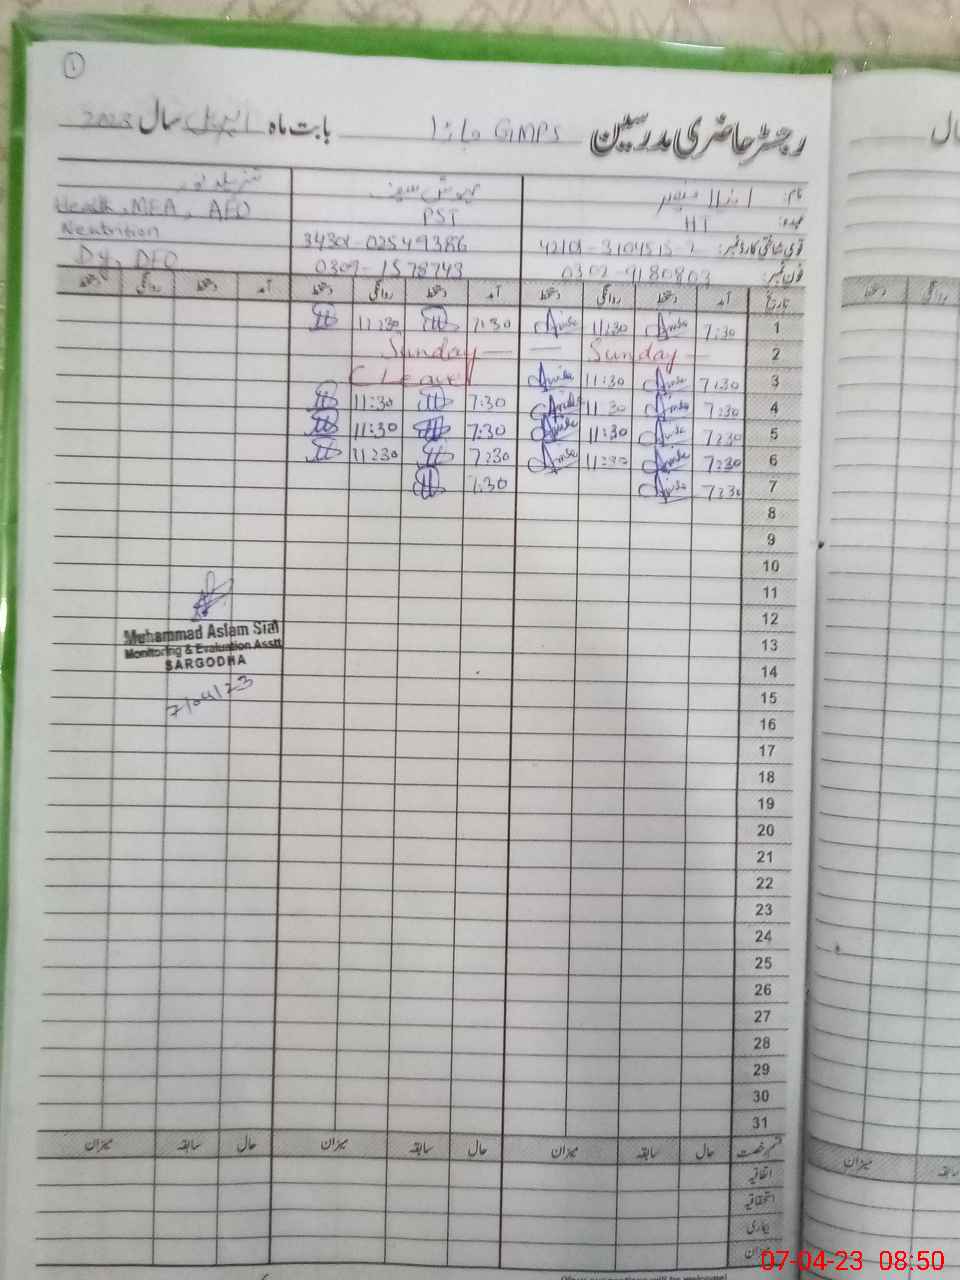 1
رجسٹر حاضری مدرسین GMPS بابت ماہ اپریل سال 2023
نام:
عہدہ: HT PST Health, MEA, AEO
Neutrition
قومی شناختی کارڈ نمبر: 34301-02549386
Dy, DEO
فون نمبر: 0302-9180803 0307-1578743
تاریخ آمد دستخط روانگی دستخط آمد دستخط روانگی دستخط آمد دستخط روانگی دستخط
1 7:30 11:30 7:30 11:30
2 Sunday Sunday
3 7:30 11:30 C Leave
4 7:30 11:30 7:30 11:30
5 7:30 11:30 7:30 11:30
6 7:30 11:30 7:30 11:30
7 7:30 7:30
8
9
10
11
12
13
14
15
16
17
18
19
20
21
22
23
24
25
26
27
28
29
30
31
Muhammad Aslam Sial
Monitoring & Evaluation Asstt
SARGODHA
7/04/23
قسم رخصت حال سابقہ میزان حال سابقہ میزان حال سابقہ میزان
اتفاقیہ
استحقاقیہ
بیماری
میزان
07-04-23 08:50